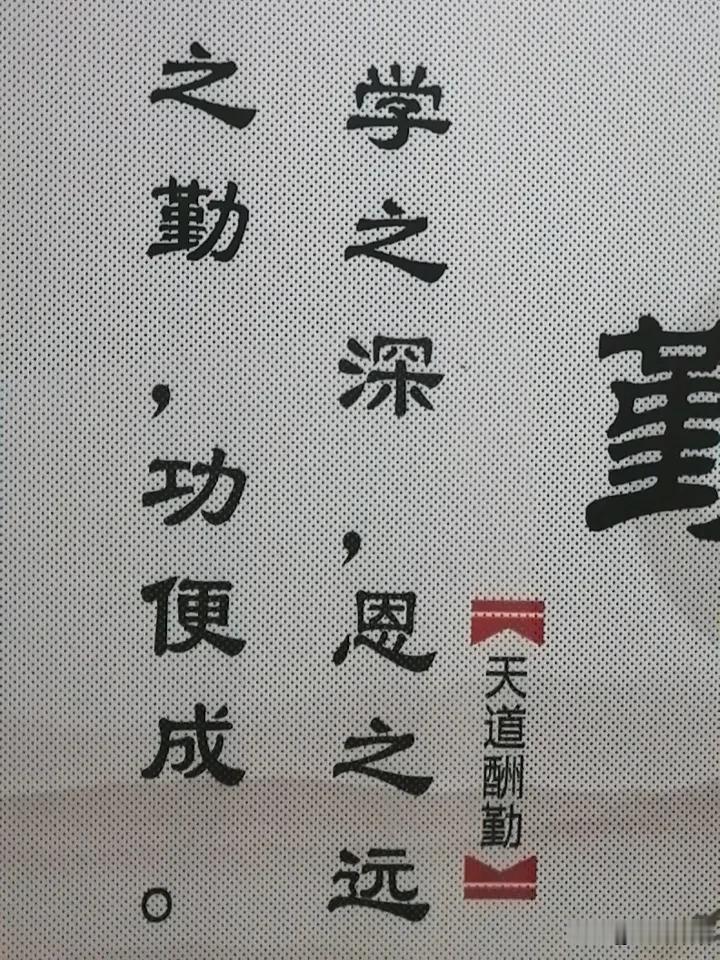 勤
天道酬勤
学之深，恩之远
之勤，功便成。